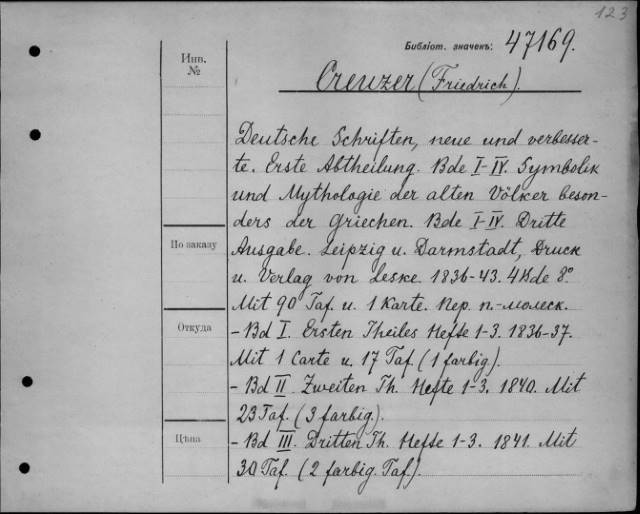 123
Библіот. значекъ: 47169.
Инв.
№
Creuzer (Friedrich).
Deutsche Schriften, neue und verbesser-
te. Erste Abtheilung. Bde I-IV. Symbolik
und Mythologie der alten Völker beson-
ders der Griechen. Bde I-IV. Dritte
По заказу
Ausgabe. Leipzig u. Darmstadt, Druck
u. Verlag von Leske. 1836-43. 4 Bde 8°.
Mit 90 Taf. u. 1 Karte. Пер. п.-молеск.
Откуда
- Bd I. Ersten Theiles Hefte 1-3. 1836-37.
Mit 1 Carte u. 17 Taf. (1 farbig).
- Bd II. Zweiten Th. Hefte 1-3. 1840. Mit
23 Taf. (3 farbig).
Цѣна
- Bd III. Dritten Th. Hefte 1-3. 1841. Mit
30 Taf. (2 farbig. Taf.).